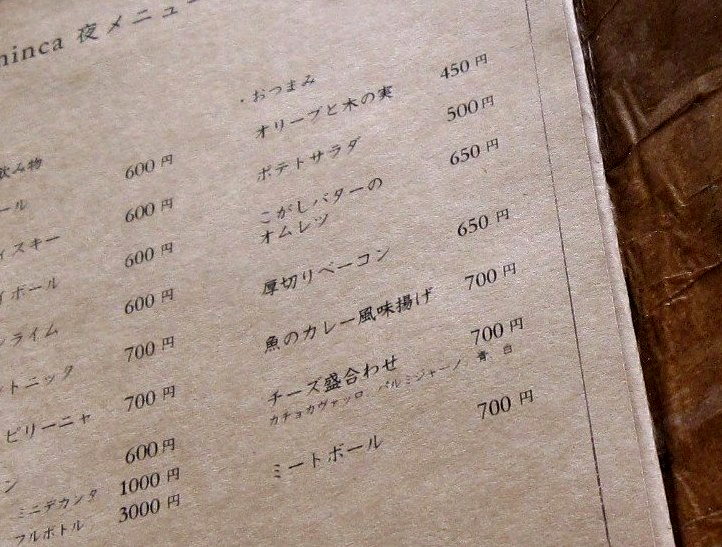 ninca 夜メニュー
飲み物
ール 600円
ィスキー 600円
イボール 600円
ンライム 600円
ットニック 700円
ピリーニャ 700円
ン 600円
ミニデカンタ 1000円
フルボトル 3000円
・おつまみ
オリーブと木の実 450円
ポテトサラダ 500円
こがしバターの 650円
オムレツ
厚切りベーコン 650円
魚のカレー風味揚げ 700円
チーズ盛合わせ 700円
カチョカヴァッロ、パルミジャーノ、青、白
ミートボール 700円